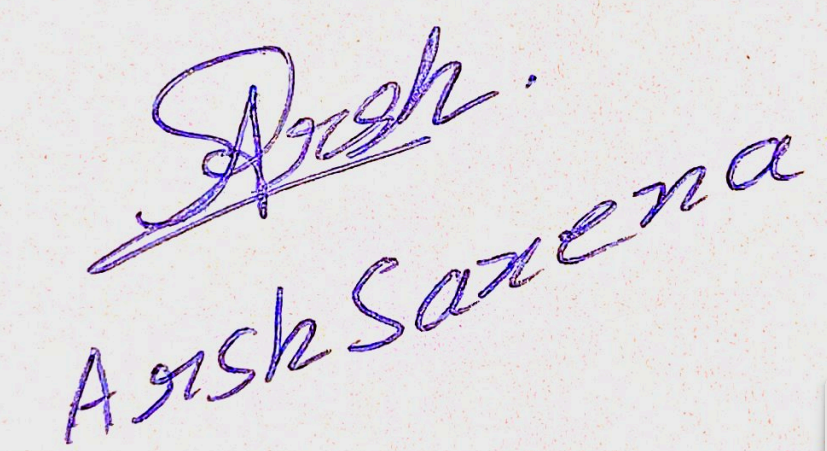 Arsh.
Arsh Saxena